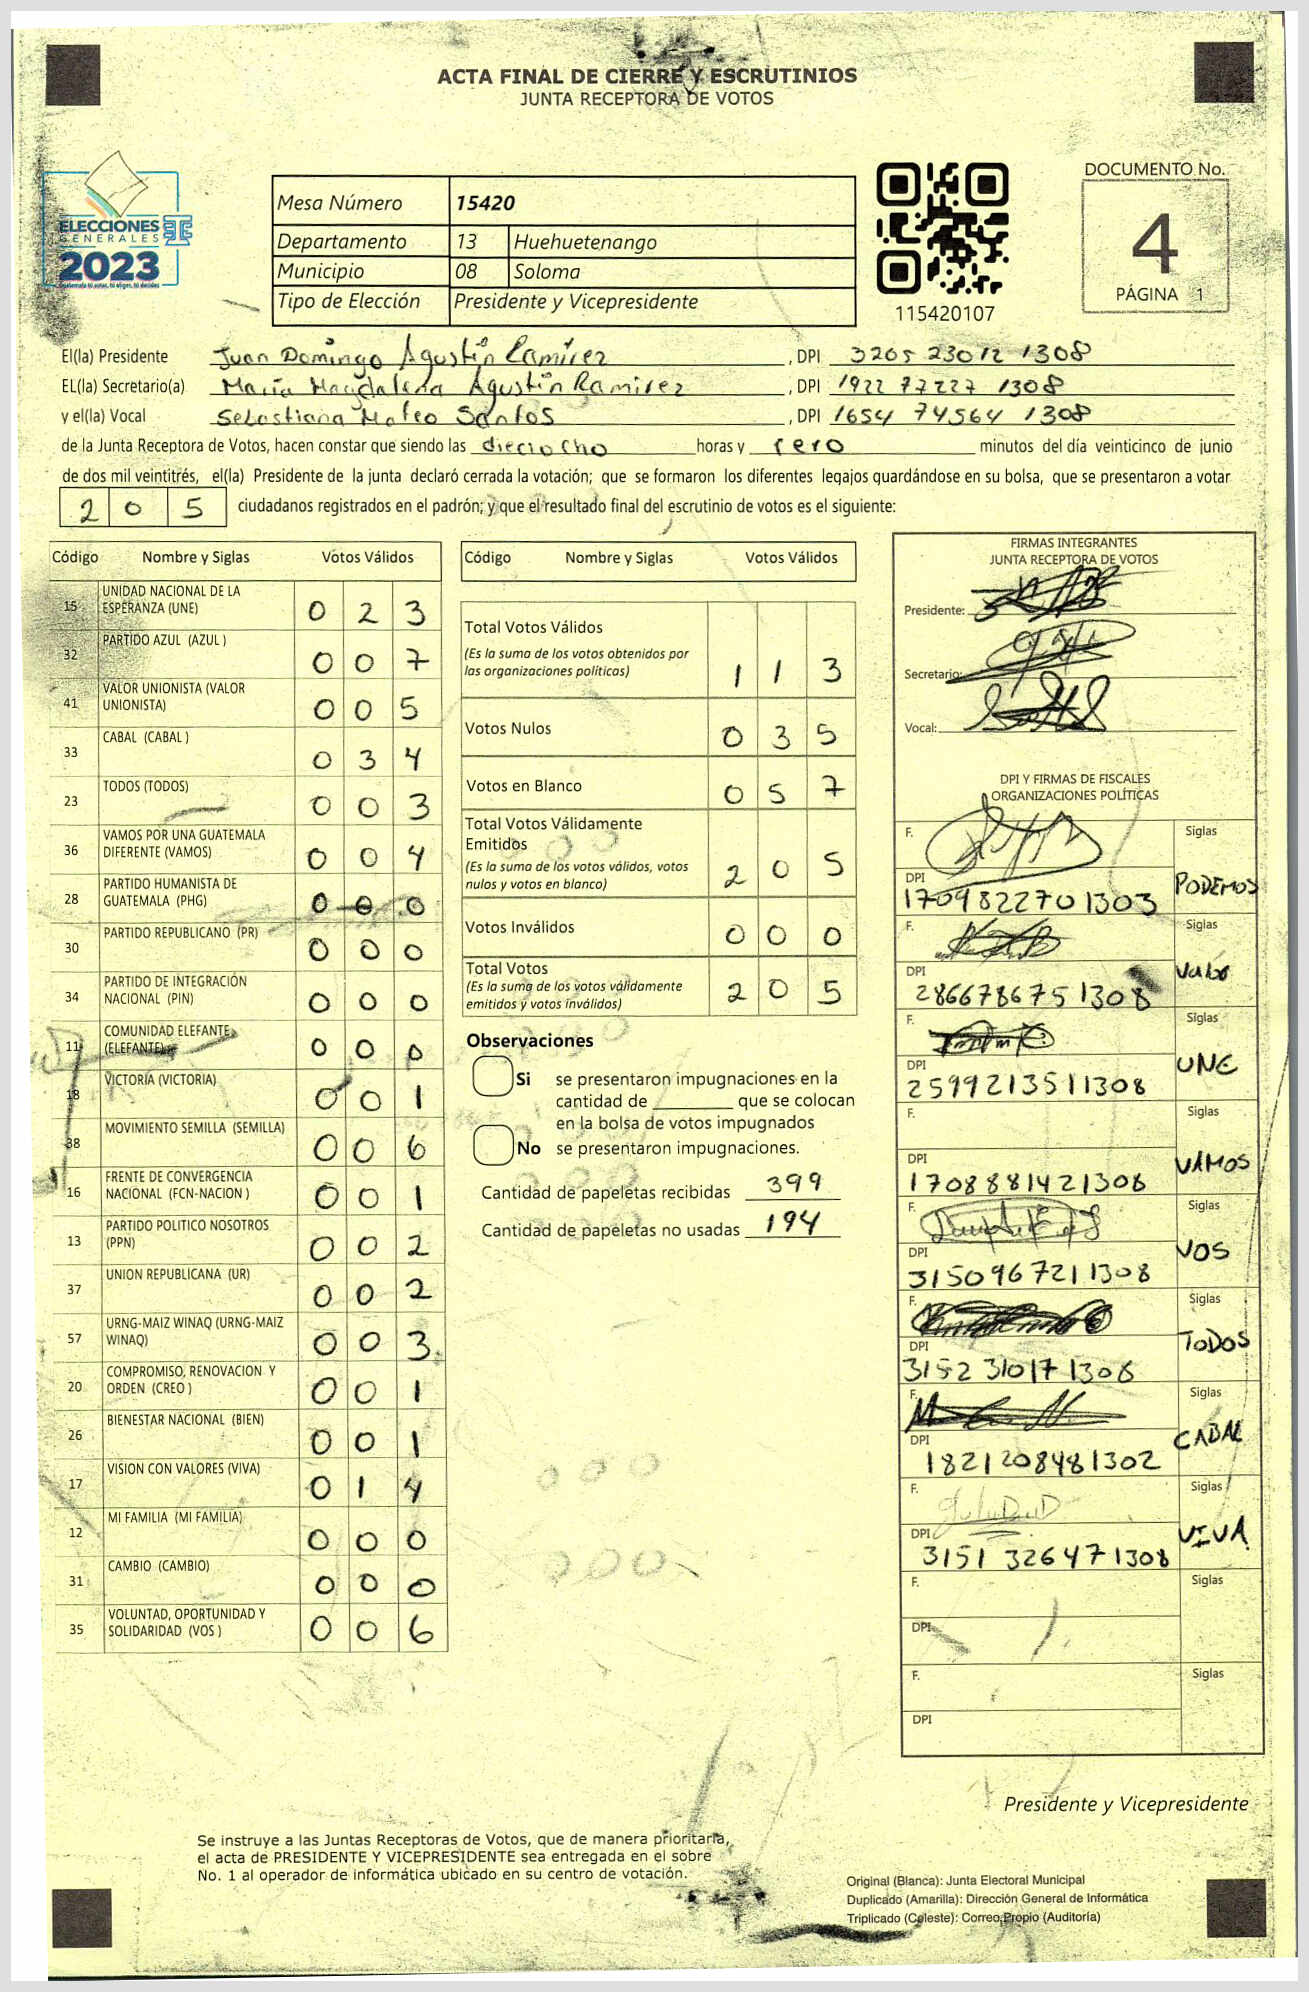 ACTA FINAL DE CIERRE Y ESCRUTINIOS
JUNTA RECEPTORA DE VOTOS
ELECCIONES
GENERALES
2023
Guatemala tú votas, tú eliges, tú decides
Mesa Número 15420
Departamento 13 Huehuetenango
Municipio 08 Soloma
Tipo de Elección Presidente y Vicepresidente
115420107
DOCUMENTO No.
4
PÁGINA 1
El(la) Presidente Juan Domingo Agustín Ramírez , DPI 3205 23012 1308
EL(la) Secretario(a) María Magdalena Agustín Ramirez , DPI 1922 77227 1308
y el(la) Vocal Sebastiana Mateo Santos , DPI 1654 74564 1308
de la Junta Receptora de Votos, hacen constar que siendo las dieciocho horas y cero minutos del día veinticinco de junio
de dos mil veintitrés, el(la) Presidente de la junta declaró cerrada la votación; que se formaron los diferentes legajos guardándose en su bolsa, que se presentaron a votar
2 0 5 ciudadanos registrados en el padrón; y que el resultado final del escrutinio de votos es el siguiente:
Código Nombre y Siglas Votos Válidos
15 UNIDAD NACIONAL DE LA ESPERANZA (UNE) 0 2 3
32 PARTIDO AZUL (AZUL ) 0 0 7
41 VALOR UNIONISTA (VALOR UNIONISTA) 0 0 5
33 CABAL (CABAL ) 0 3 4
23 TODOS (TODOS) 0 0 3
36 VAMOS POR UNA GUATEMALA DIFERENTE (VAMOS) 0 0 4
28 PARTIDO HUMANISTA DE GUATEMALA (PHG) 0 0 0
30 PARTIDO REPUBLICANO (PR) 0 0 0
34 PARTIDO DE INTEGRACIÓN NACIONAL (PIN) 0 0 0
11 COMUNIDAD ELEFANTE (ELEFANTE) 0 0 0
18 VICTORIA (VICTORIA) 0 0 1
38 MOVIMIENTO SEMILLA (SEMILLA) 0 0 6
16 FRENTE DE CONVERGENCIA NACIONAL (FCN-NACION ) 0 0 1
13 PARTIDO POLITICO NOSOTROS (PPN) 0 0 2
37 UNION REPUBLICANA (UR) 0 0 2
57 URNG-MAIZ WINAQ (URNG-MAIZ WINAQ) 0 0 3
20 COMPROMISO, RENOVACION Y ORDEN (CREO ) 0 0 1
26 BIENESTAR NACIONAL (BIEN) 0 0 1
17 VISION CON VALORES (VIVA) 0 1 4
12 MI FAMILIA (MI FAMILIA) 0 0 0
31 CAMBIO (CAMBIO) 0 0 0
35 VOLUNTAD, OPORTUNIDAD Y SOLIDARIDAD (VOS ) 0 0 6
Código Nombre y Siglas Votos Válidos
Total Votos Válidos
(Es la suma de los votos obtenidos por
las organizaciones políticas) 1 1 3
Votos Nulos 0 3 5
Votos en Blanco 0 5 7
Total Votos Válidamente
Emitidos
(Es la suma de los votos válidos, votos
nulos y votos en blanco) 2 0 5
Votos Inválidos 0 0 0
Total Votos
(Es la suma de los votos válidamente
emitidos y votos inválidos) 2 0 5
Observaciones
Si se presentaron impugnaciones en la
cantidad de ________ que se colocan
en la bolsa de votos impugnados
No se presentaron impugnaciones.
Cantidad de papeletas recibidas 399
Cantidad de papeletas no usadas 194
FIRMAS INTEGRANTES
JUNTA RECEPTORA DE VOTOS
Presidente:
Secretario:
Vocal:
DPI Y FIRMAS DE FISCALES
ORGANIZACIONES POLÍTICAS
F. Siglas
DPI PODEMOS
1709822701303
F. Siglas
DPI Valor
2866786751308
F. Siglas
DPI UNE
2599213511308
F. Siglas
DPI VAMOS
1708881421308
F. Siglas
DPI VOS
3150967211308
F. Siglas
DPI TODOS
3152310171308
F. Siglas
DPI CABAL
1821208481302
F. Siglas
DPI VIVA
3151326471308
F. Siglas
DPI
F. Siglas
DPI
Presidente y Vicepresidente
Se instruye a las Juntas Receptoras de Votos, que de manera prioritaria,
el acta de PRESIDENTE Y VICEPRESIDENTE sea entregada en el sobre
No. 1 al operador de informática ubicado en su centro de votación.
Original (Blanca): Junta Electoral Municipal
Duplicado (Amarilla): Dirección General de Informática
Triplicado (Celeste): Correo Propio (Auditoría)